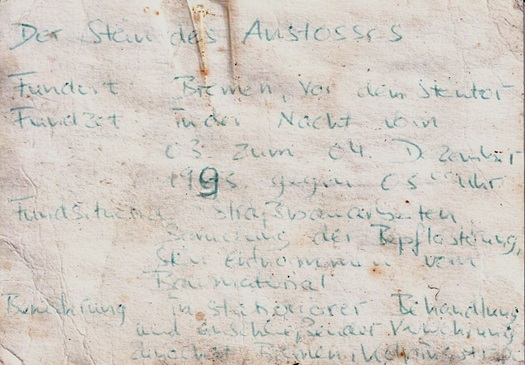 Der Stein des Anstosses
Fundort Bremen, vor dem Steintor
Fundzeit In der Nacht vom
03. zum 04. Dezember
gegen Uhr
Fundsituation Straßenbauarbeiten
der Bepflasterung,
Stein entnommen vom
Baumaterial
Bemerkung In stationärer Behandlung
und anschließender Verwahrung
Bremen,